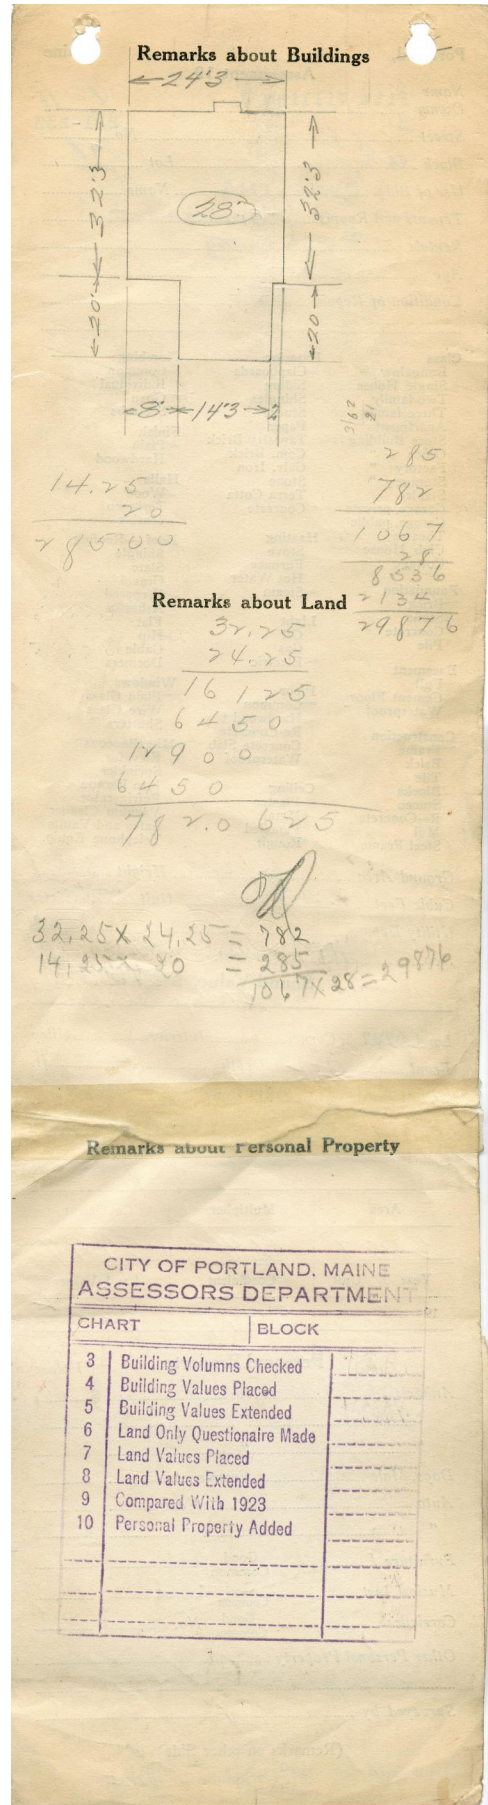 Remarks about Buildings
24'3
32'3
32'3
28'
20'
20
8' 14'3 2
3/62
21
285
782
1067
28
8536
2134
29876
14.25
20
285.00
Remarks about Land
32.25
24.25
16125
6450
12900
6450
782.0625
32.25 X 24.25 = 782
14.25 X 20 = 285
1067 X 28 = 29876
Remarks about Personal Property
CITY OF PORTLAND, MAINE
ASSESSORS DEPARTMENT
CHART BLOCK
3 Building Volumns Checked
4 Building Values Placed
5 Building Values Extended
6 Land Only Questionaire Made
7 Land Values Placed
8 Land Values Extended
9 Compared With 1923
10 Personal Property Added